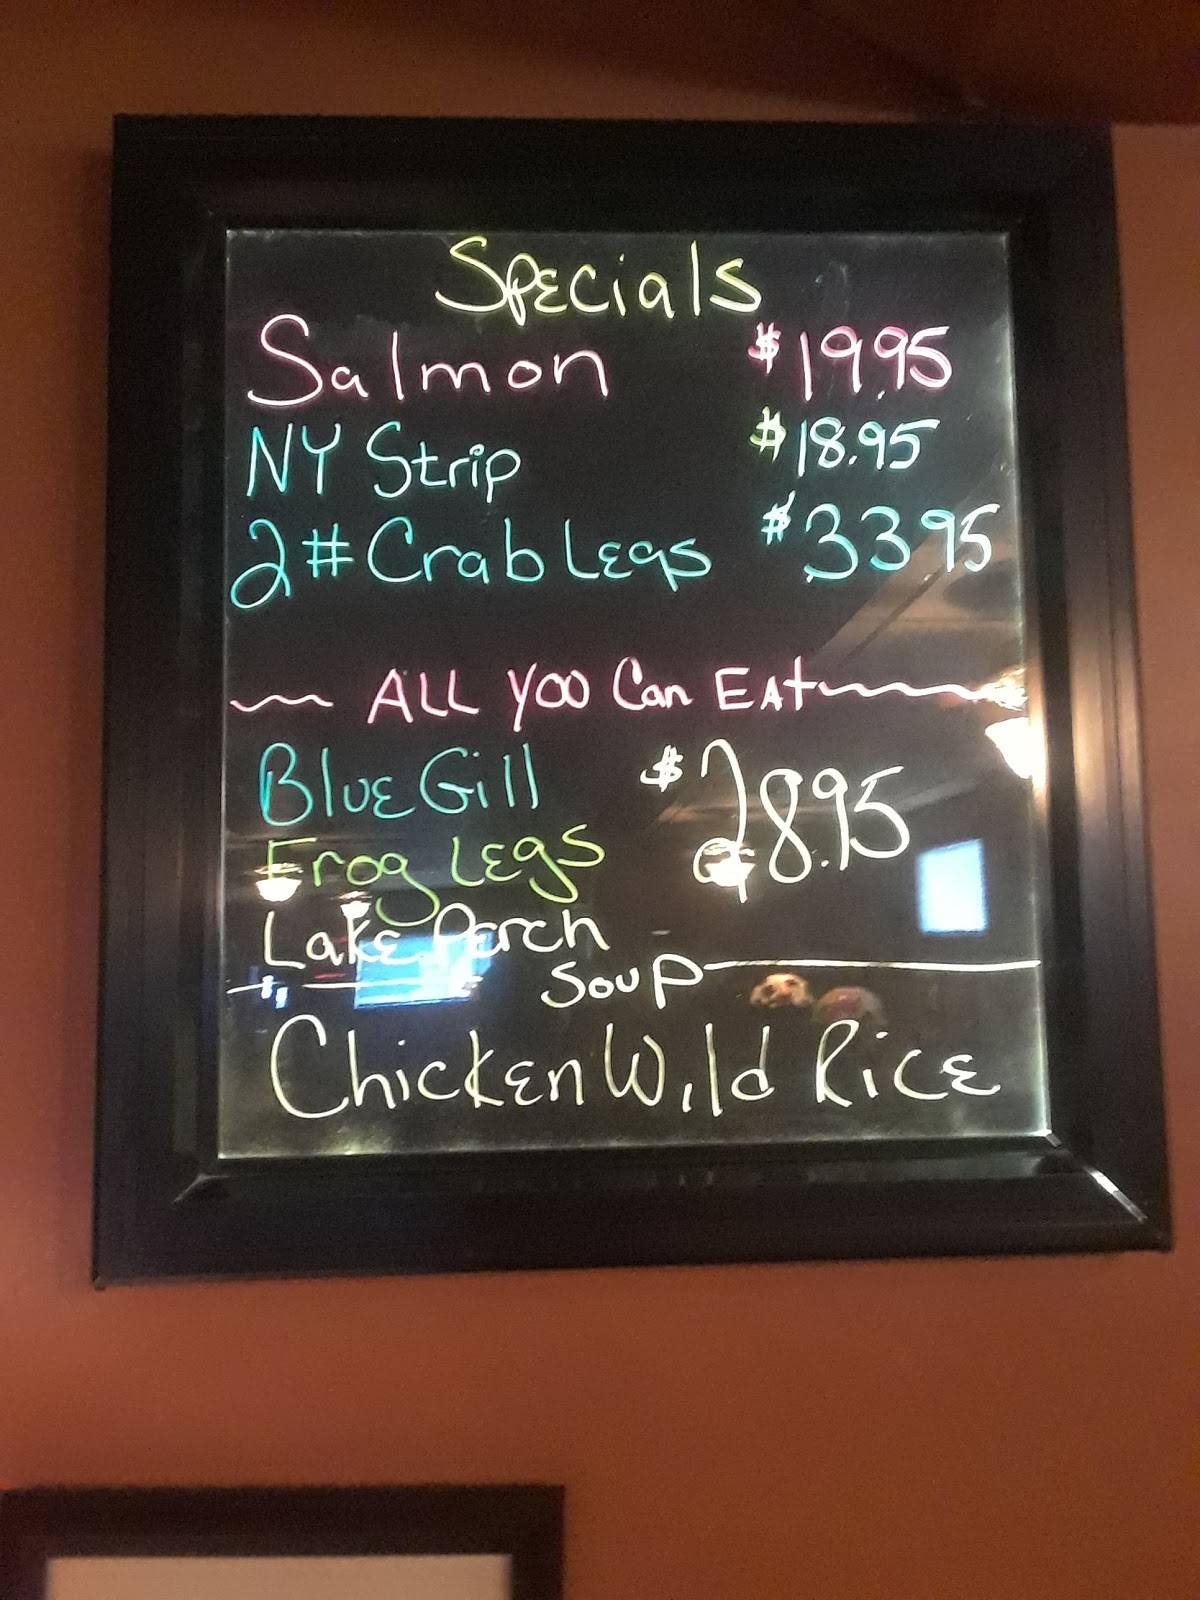 Specials
Salmon $19.95
NY Strip $18.95
2# Crab Legs $33 95
ALL YOU Can EAt
Blue Gill $28.95
Frog Legs
Lake Perch
Soup
Chicken Wild Rice